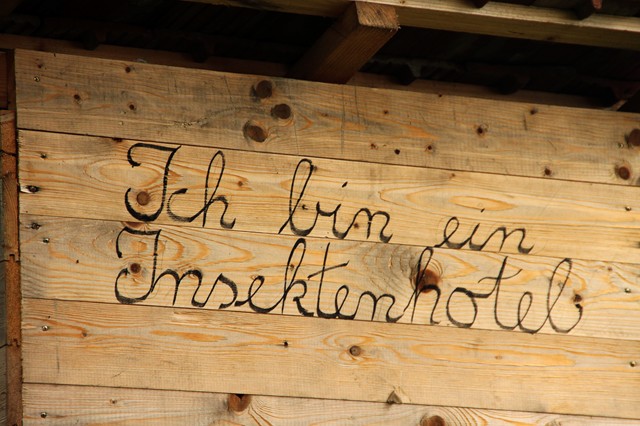 Ich bin ein
Insektenhotel